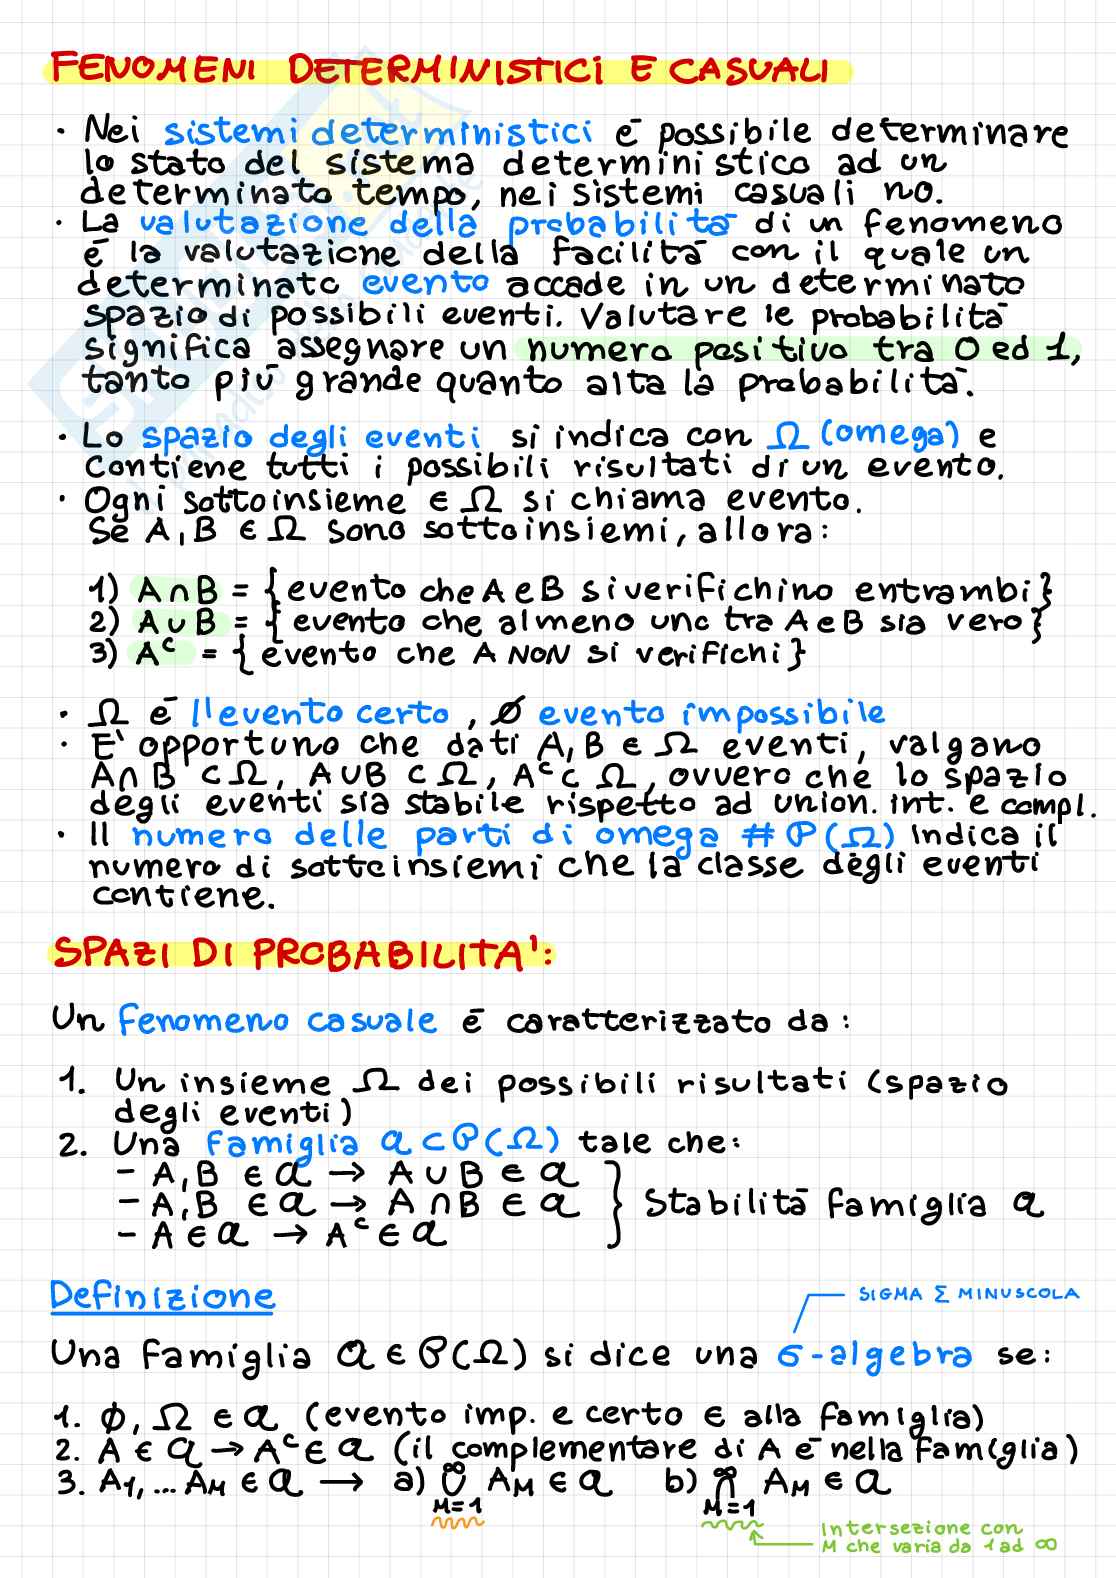 FENOMENI DETERMINISTICI E CASUALI
· Nei sistemi deterministici è possibile determinare
lo stato del sistema deterministico ad un
determinato tempo, nei sistemi casuali no.
· La valutazione della probabilità di un fenomeno
è la valutazione della facilità con il quale un
determinato evento accade in un determinato
spazio di possibili eventi. Valutare le probabilità
significa assegnare un numero positivo tra 0 ed 1,
tanto più grande quanto alta la probabilità.
· Lo spazio degli eventi si indica con Ω (omega) e
contiene tutti i possibili risultati di un evento.
· Ogni sottoinsieme ∈ Ω si chiama evento.
Se A, B ∈ Ω sono sottoinsiemi, allora:
1) A ∩ B = { evento che A e B si verifichino entrambi }
2) A ∪ B = { evento che almeno uno tra A e B sia vero }
3) Aᶜ = { evento che A NON si verifichi }
· Ω è l'evento certo, ∅ evento impossibile
· E' opportuno che dati A, B ∈ Ω eventi, valgano
A ∩ B ⊂ Ω, A ∪ B ⊂ Ω, Aᶜ ⊂ Ω, ovvero che lo spazio
degli eventi sia stabile rispetto ad union. int. e compl.
· Il numero delle parti di omega # P(Ω) indica il
numero di sottoinsiemi che la classe degli eventi
contiene.
SPAZI DI PROBABILITA':
Un fenomeno casuale è caratterizzato da:
1. Un insieme Ω dei possibili risultati (spazio
degli eventi)
2. Una famiglia a ⊂ P(Ω) tale che:
- A, B ∈ a → A ∪ B ∈ a
- A, B ∈ a → A ∩ B ∈ a } Stabilità famiglia a
- A ∈ a → Aᶜ ∈ a
Definizione
SIGMA Σ MINUSCOLA
Una famiglia a ∈ P(Ω) si dice una σ-algebra se:
1. ∅, Ω ∈ a (evento imp. e certo ∈ alla famiglia)
2. A ∈ a → Aᶜ ∈ a (il complementare di A è nella famiglia)
3. A1, ... AM ∈ a → a) ∞∪M=1 AM ∈ a b) ∞∩M=1 AM ∈ a
Intersezione con
M che varia da 1 ad ∞